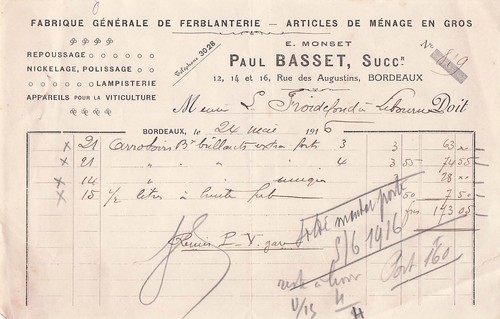 FABRIQUE GÉNÉRALE DE FERBLANTERIE — ARTICLES DE MÉNAGE EN GROS
REPOUSSAGE
NICKELAGE, POLISSAGE
LAMPISTERIE
APPAREILS POUR LA VITICULTURE
Téléphone 30.28
E. MONSET
PAUL BASSET, SUCCR
12, 14 et 16, Rue des Augustins, BORDEAUX
No 459
L. Froidefond à Libourne Doit
BORDEAUX, le 24 mai 1916
21 Arrosoirs Bx brillants extra forts 3 3 63
21 " " " 4 3 55 74 55
14 " 2 28
15 1/2 litres à huile 50 7 50
173 05
Remis P. V. gare
mandat poste
5/6 1916
Port 160
reste à
4
4